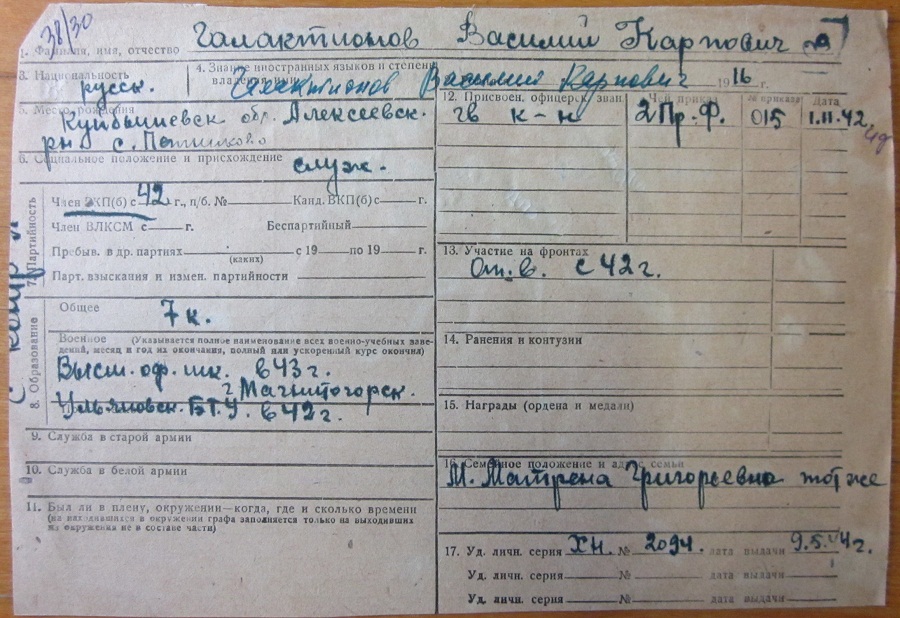 38/30
1. Фамилия, имя, отчество Галактионов Василий Карпович
3. Национальность русск.
4. Знание иностранных языков и степень
Галактионов Василий Карпович 1916 г.
5. Место рождения
Куйбышевск обл. Алексеевск.
рн с.
6. Социальное положение и присхождение служ.
7. Партийность
Член ВКП(б) с 42 г., п/б. № Канд. ВКП(б) с г.
Член ВЛКСМ с г. Беспартийный
Пребыв. в др. партиях с 19 по 19 г.
(каких)
Парт. взыскания и измен. партийности
8. Образование
Общее 7 к.
Военное (Указывается полное наименование всех военно-учебных заве-
дений, месяц и год их окончания, полный или ускоренный курс окончил)
Высш. оф. шк. в 43 г.
г. Магнитогорск.
Ульяновск. БТУ. в 42 г.
9. Служба в старой армии
10. Служба в белой армии
11. Был ли в плену, окружении—когда, где и сколько времени
(на находившихся в окружении графа заполняется только на выходивших
из окружения не в составе части)
12. Присвоен. офицерск. зван. Чей приказ № приказа Дата
гв к-н 2 Пр-Ф. 015 1.11.42
13. Участие на фронтах
От. в. с 42 г.
14. Ранения и контузии
15. Награды (ордена и медали)
16. Семейное положение и адрес семьи
М. Матрена Григорьевна тот же
17. Уд. личн. серия ХН. № 2094. дата выдачи 9.5.44 г.
Уд. личн. серия № дата выдачи
Уд. личн. серия № дата выдачи